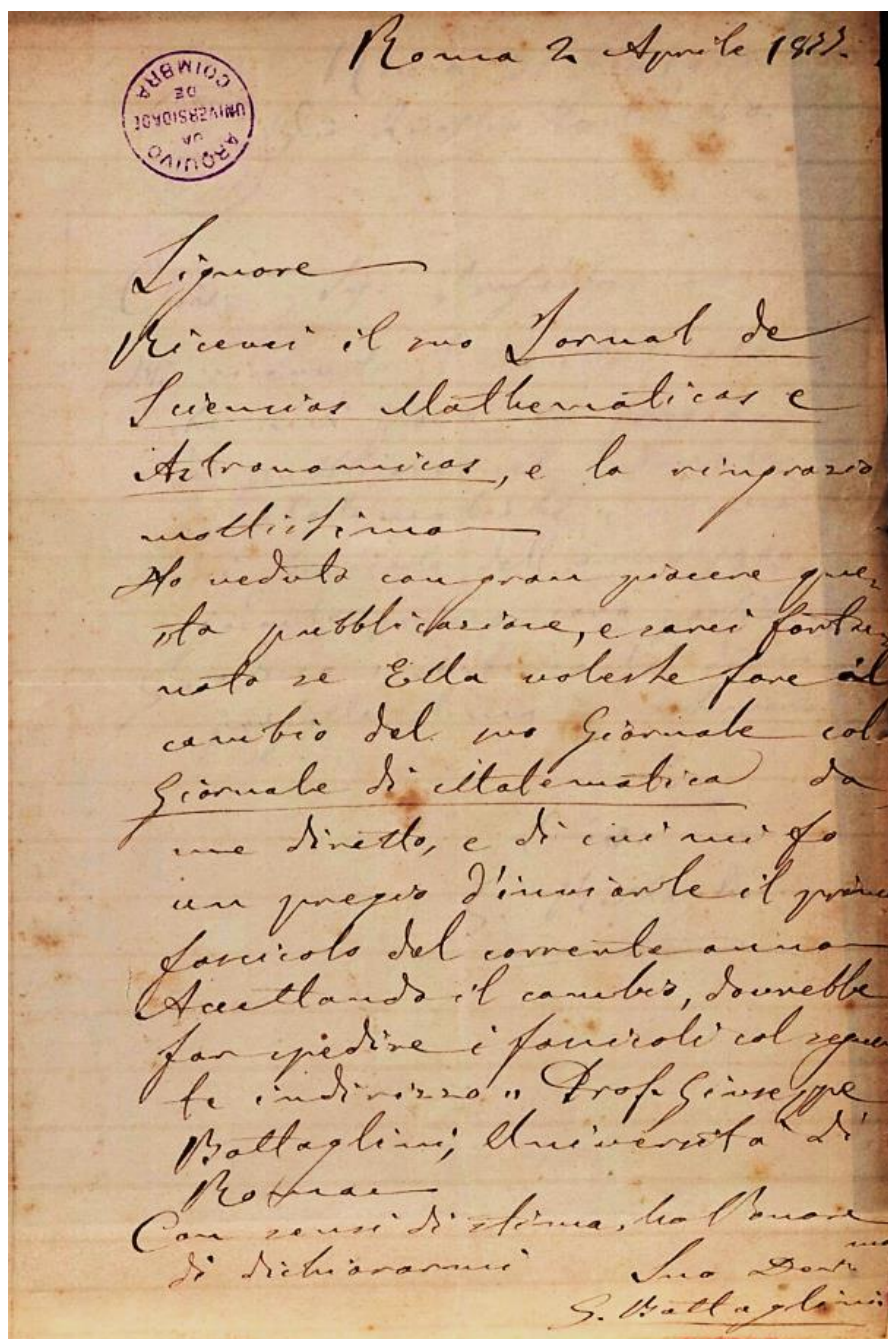 Roma 2 Aprile 1877.
ARQUIVO
DA
UNIVERSIDADE
DE
COIMBRA
Signore
Ricevei il suo Jornal de
Sciencias Mathematicas e
Astronomicas, e la ringrazio
moltissimo
Ho veduto con gran piacere que-
sta pubblicazione, e sarei fortu-
nato se Ella volesse fare il
cambio del suo Giornale col
Giornale di Matematica da
me diretto, e di cui mi fo
un pregio d'inviarle il primo
fascicolo del corrente anno
Accettando il cambio, dovrebbe
far spedire i fascicoli col seguen
te indirizzo " Prof. Giuseppe
Battaglini, Università di
Roma
Con sensi di stima, ho l'onore
di dichiararmi
Suo Devmo
G. Battaglini